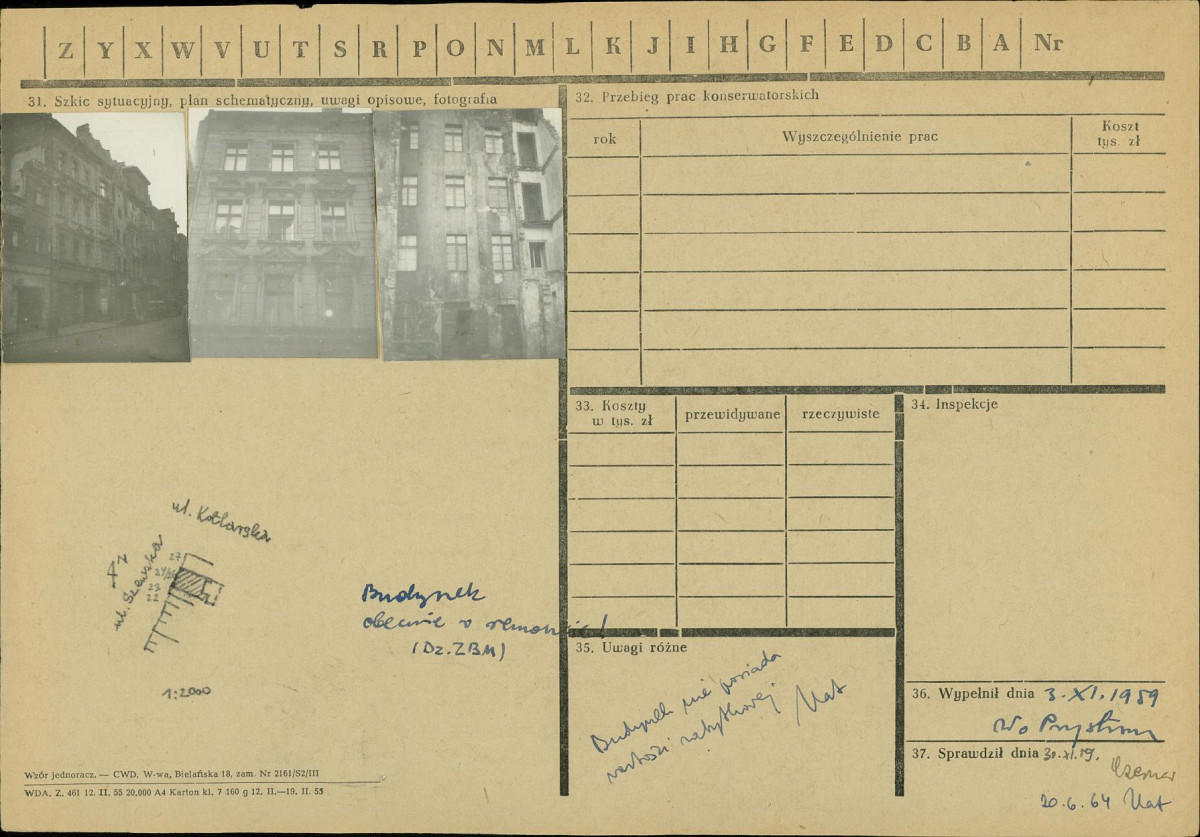 Z Y X W V U T S R P O N M L K J I H G F E D C B A Nr
31. Szkic sytuacyjny, plan schematyczny, uwagi opisowe, fotografia
ul. Kotlarska
ul. Szewska
27
23
22
1:2000
Budynek
obecnie w remoncie!
(Dz. ZBM)
Wzór jednoracz. — CWD, W-wa, Bielańska 18, zam. Nr 2161/S2/III
WDA. Z. 461 12. II. 55 20.000 A4 Karton kl. 7 160 g 12. II.—19. II. 55
32. Przebieg prac konserwatorskich
rok
Wyszczególnienie prac
Koszt
tys. zł
33. Koszty
w tys. zł
przewidywane
rzeczywiste
34. Inspekcje
35. Uwagi różne
Budynek nie posiada
wartości zabytkowej
36. Wypełnił dnia 3.XI.1959
37. Sprawdził dnia 30.XI.59.
20.6.64